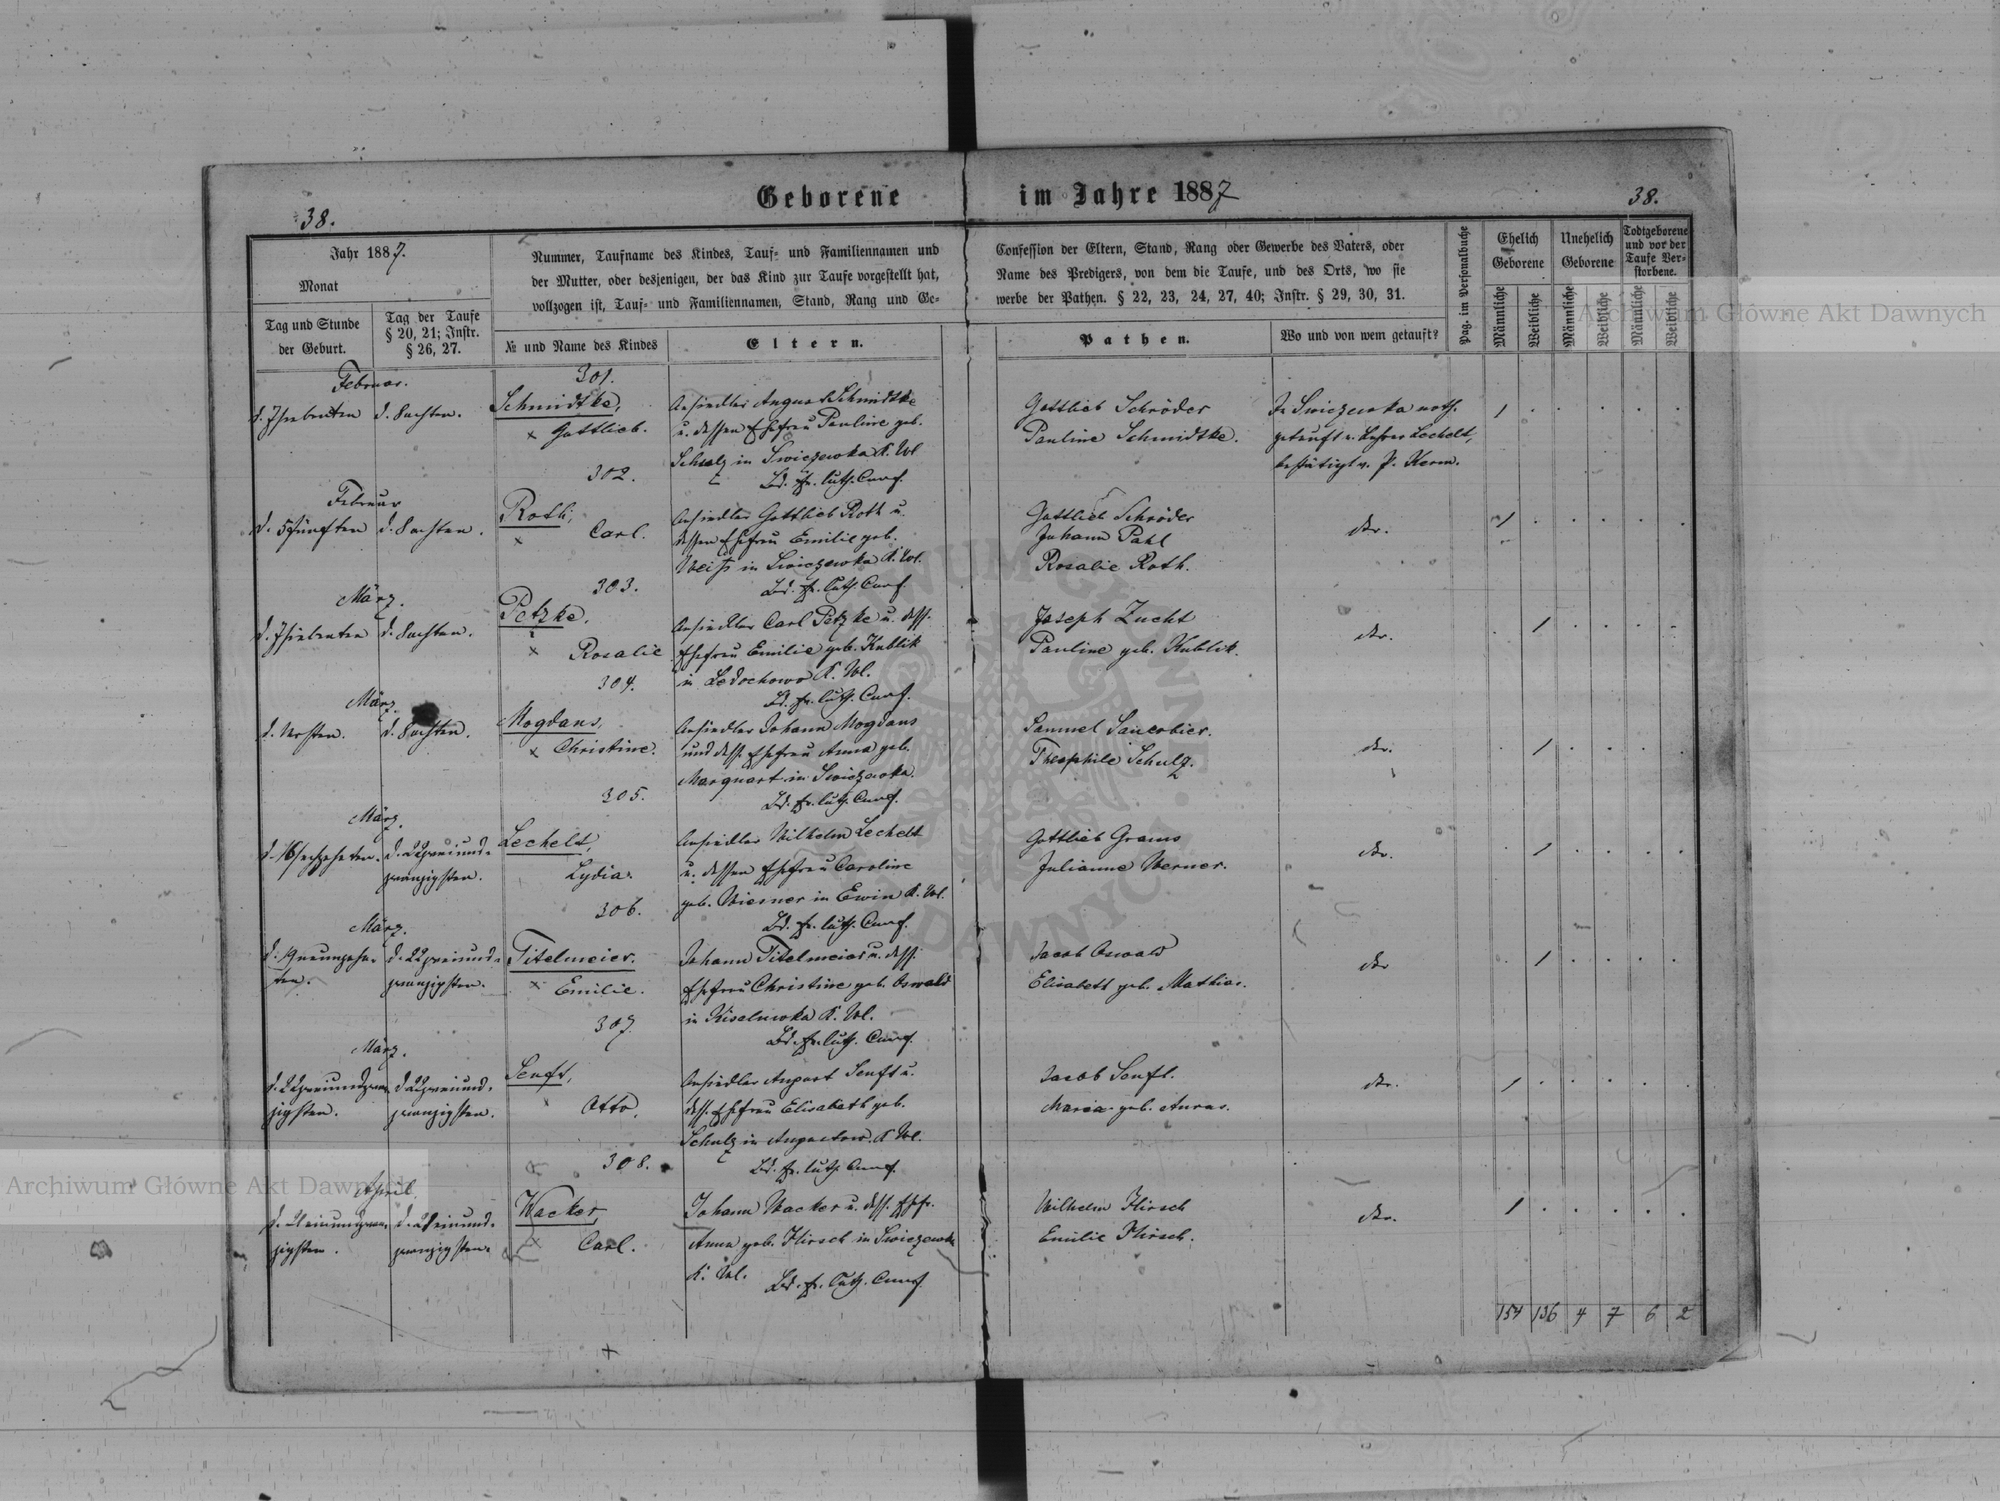 Geborene im Jahre 1887
38.
38.
Jahr 1887.
Monat
Tag und Stunde
der Geburt.
Tag der Taufe
§ 20, 21; Instr.
§ 26, 27.
Nummer, Taufname des Kindes, Tauf- und Familiennamen und
der Mutter, oder desjenigen, der das Kind zur Taufe vorgestellt hat,
vollzogen ist, Tauf- und Familiennamen, Stand, Rang und Ge-
№ und Name des Kindes
Eltern.
Confession der Eltern, Stand, Rang oder Gewerbe des Vaters, oder
Name des Predigers, von dem die Taufe, und des Orts, wo sie
werbe der Pathen. § 22, 23, 24, 27, 40; Instr. § 29, 30, 31.
Pathen.
Wo und von wem getauft?
Pag. im Personalbuche
Ehelich
Geborene
Unehelich
Geborene
Todtgeborene
und vor der
Taufe Ver-
storbene.
Männliche
Weibliche
Männliche
Weibliche
Männliche
Weibliche
Februar.
d. 7 siebenten
d. sechsten.
301.
Schmidtke,
× Gottlieb.
Ansiedler August Schmidtke
u. dessen Ehefrau Pauline geb.
Schulz in Swiczewka K. Wl
Bd. Ev. luth. Conf.
Gottlieb Schröder
Pauline Schmidtke.
In Swiczewka noth.
getauft v. Lehrer Lechelt,
bestätigt v. P. Kerm.
Februar
d. 5 fünften
d. sechsten.
302.
Roth,
× Carl.
Ansiedler Gottlieb Roth u.
dessen Ehefrau Emilie geb.
Weiss in Swiczewka K. Wl.
Bd. Ev. luth. Conf.
Gottlieb Schröder
Johann Pahl
Rosalie Roth.
dto.
März.
d. 7 siebenten
d. sechsten.
303.
Petzke,
× Rosalie
Ansiedler Carl Petzke u. dess.
Ehefrau Emilie geb. Kublik
in Ledochowo K. Wl.
Bd. Ev. luth. Conf.
Joseph Zucht
Pauline geb. Kublik.
dto.
März.
d. 1 ersten.
d. sechsten.
304.
Mogdans,
× Christine.
Ansiedler Johann Mogdans
und dess. Ehefrau Anna geb.
Marquart in Swiczewka.
Bd. Ev. luth. Conf.
Samuel
Theophile Schulz.
dto.
März.
d. 16 sechzehnten.
d. 22 zweiund-
zwanzigsten.
305.
Lechelt,
Lydia.
Ansiedler Wilhelm Lechelt
u. dessen Ehefrau Caroline
geb. Wiesner in Erwin K. Wl.
Bd. Ev. luth. Conf.
Gottlieb Grams
Julianne Werner.
dto.
März.
d. 19 neunzehn-
ten.
d. 22 zweiund-
zwanzigsten.
306.
Titelmeier.
× Emilie.
Johann Titelmeier u. dess.
Ehefrau Christine geb. Oswald
in Kiselewka K. Wl.
Bd. Ev. luth. Conf.
Jacob Oswald
Elisabeth geb. Mathias.
dto
März.
d. 22 zweiundzwan-
zigsten.
d. 22 zweiund-
zwanzigsten.
307.
Senft,
× Otto.
Ansiedler August Senft u.
dess. Ehefrau Elisabeth geb.
Schulz in K. Wl.
Bd. Ev. luth. Conf.
Jacob Senft.
Maria geb.
dto.
April.
zigsten.
zwanzigsten.
308.
Wacker,
× Carl.
Johann Wacker u. dess. Ehefr.
Anna geb. Hirsch in Swiczewka
K. Wl. Bd. Ev. luth. Conf.
Wilhelm Hirsch
Emilie Hirsch.
dto.
154 136 4 7 6 2
Archiwum Główne Akt Dawnych
Archiwum Główne Akt Dawnych